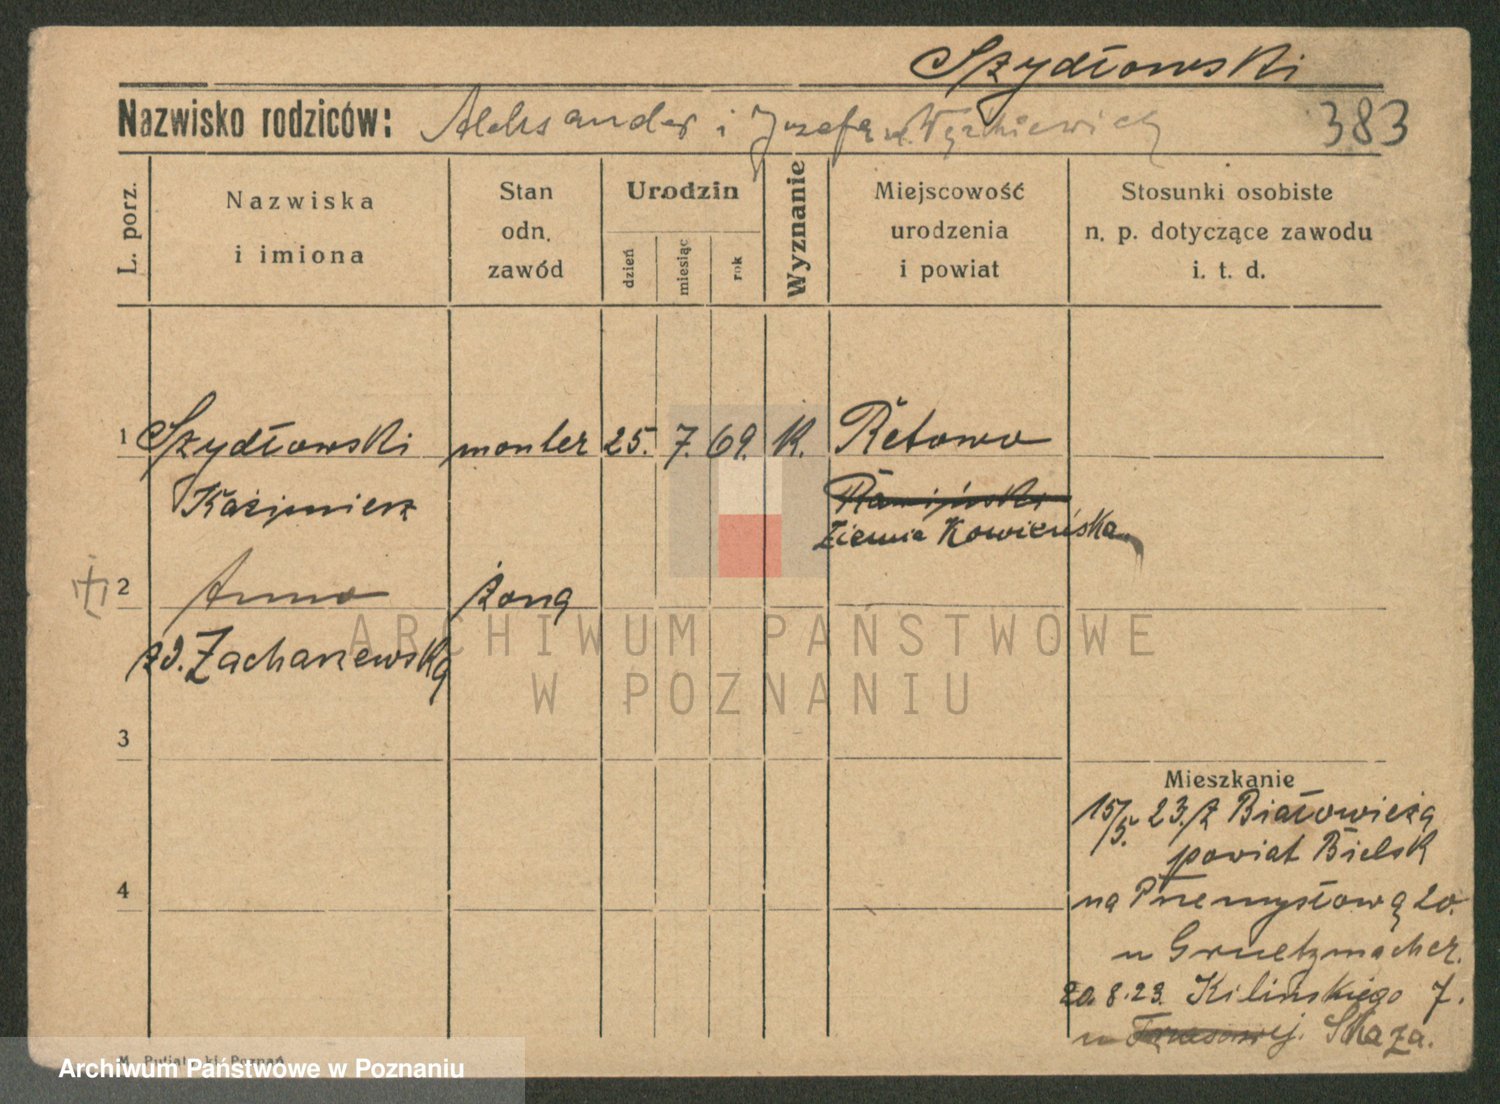 Szydłowski
Nazwisko rodziców: Aleksander i Józefa 383
L. porz.
Nazwiska
i imiona
Stan
odn.
zawód
Urodzin
dzień
miesiąc
rok
Wyznanie
Miejscowość
urodzenia
i powiat
Stosunki osobiste
n. p. dotyczące zawodu
i. t. d.
1 Szydłowski monter 25. 7. 69. K. Retowo
Kazimierz
Ziemia Kowieńska
2 Anna żona
zd. Zacharzewska
3
Mieszkanie
15/5. 23. z Białowieża
powiat Bielsk
4
na Przemysłową 20.
u Gruetzmacher.
20.8.23. Kilińskiego 7.
u Skaza.
ARCHIWUM PAŃSTWOWE
W POZNANIU
Archiwum Państwowe w Poznaniu